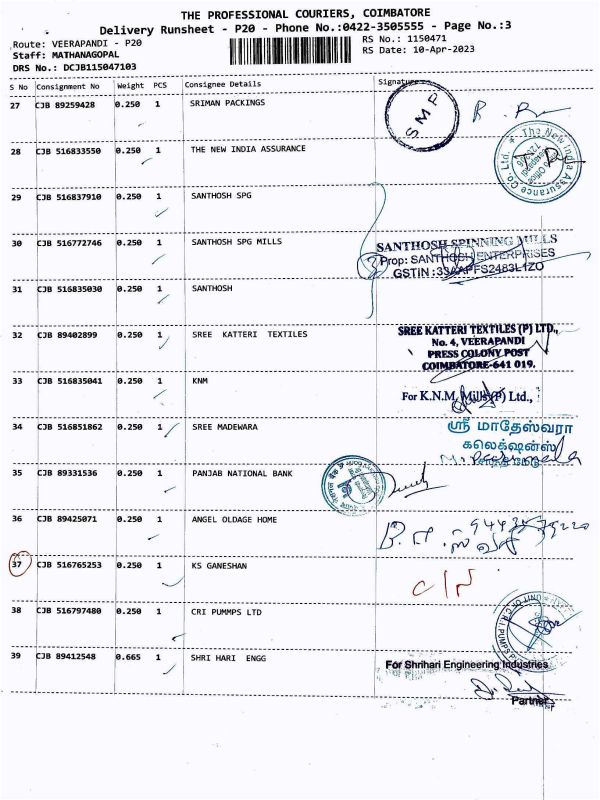 THE PROFESSIONAL COURIERS, COIMBATORE
Delivery Runsheet - P20 - Phone No.:0422-3505555 - Page No.:3
Route: VEERAPANDI - P20
RS No.: 1150471
Staff: MATHANAGOPAL
RS Date: 10-Apr-2023
DRS No.: DCJB115047103
S No Consignment No Weight PCS Consignee Details Signature
27 CJB 89259428 0.250 1 SRIMAN PACKINGS
SMP
28 CJB 516833550 0.250 1 THE NEW INDIA ASSURANCE
The New India Assurance Co. Ltd.
29 CJB 516837910 0.250 1 SANTHOSH SPG
30 CJB 516772746 0.250 1 SANTHOSH SPG MILLS
SANTHOSH SPINNING MILLS
Prop: SANTHOSH ENTERPRISES
31 CJB 516835030 0.250 1 SANTHOSH
32 CJB 89402899 0.250 1 SREE KATTERI TEXTILES
SREE KATTERI TEXTILES (P) LTD.,
No. 4, VEERAPANDI
PRESS COLONY POST
COIMBATORE-641 019.
33 CJB 516835041 0.250 1 KNM
For K.N.M. Mills (P) Ltd.,
34 CJB 516851862 0.250 1 SREE MADEWARA
ஸ்ரீ மாதேஸ்வரா
கலெக்‌ஷன்ஸ்
35 CJB 89331536 0.250 1 PANJAB NATIONAL BANK
36 CJB 89425071 0.250 1 ANGEL OLDAGE HOME
37 CJB 516765253 0.250 1 KS GANESHAN
38 CJB 516797480 0.250 1 CRI PUMMPS LTD
39 CJB 89412548 0.665 1 SHRI HARI ENGG
For Shrihari Engineering Industries
Partner